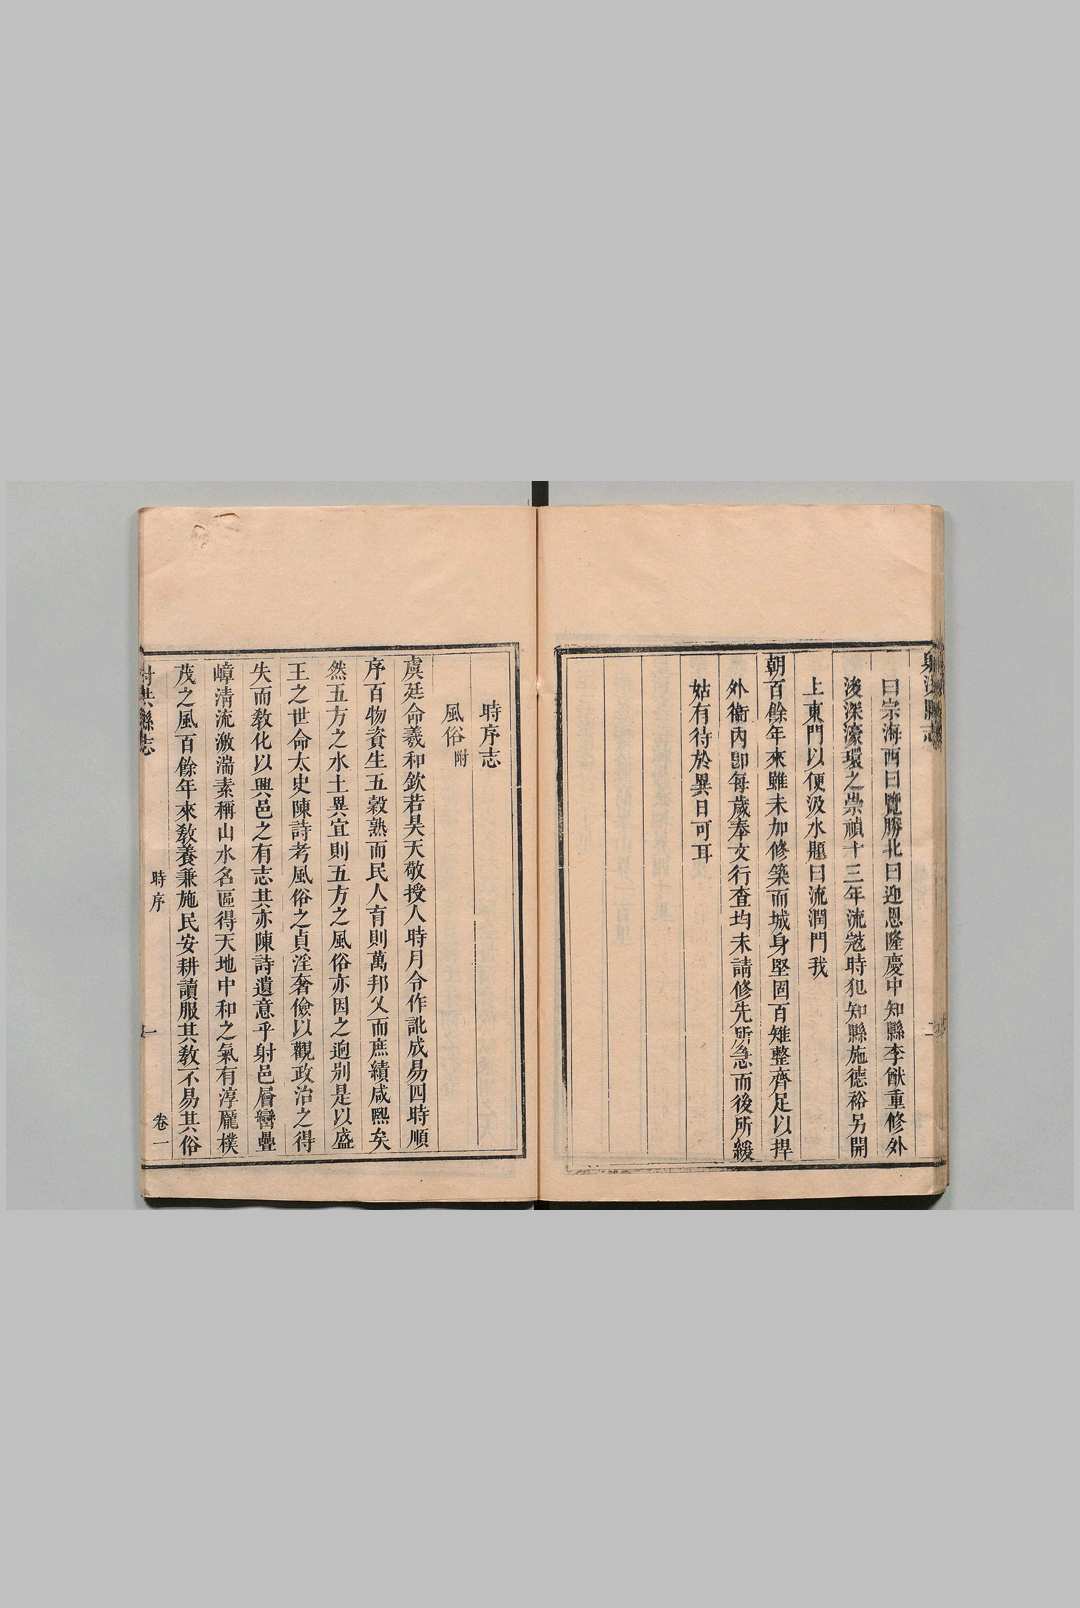 射洪縣志
二
曰宗海西曰覽勝北曰迎恩隆慶中知縣李猷重修外
浚深濠環之崇禎十三年流寇時犯知縣施德裕另開
上東門以便汲水題曰流潤門我
朝百餘年來雖未加修築而城身堅固百雉整齊足以捍
外衞內卽每歲奉文行査均未請修先所急而後所緩
姑有待於異日可耳
時序志
風俗附
虞廷命羲和欽若昊天敬授人時月令作訛成易四時順
序百物資生五穀熟而民人育則萬邦乂而庶績咸熙矣
然五方之水土異宜則五方之風俗亦因之逈别是以盛
王之世命太史陳詩考風俗之貞淫奢儉以觀政治之得
失而敎化以興邑之有志其亦陳詩遺意乎射邑層巒疊
嶂淸流激湍素稱山水名區得天地中和之氣有淳龎樸
茂之風百餘年來敎養兼施民安耕讀服其敎不易其俗
射洪縣志
時序
一
卷一